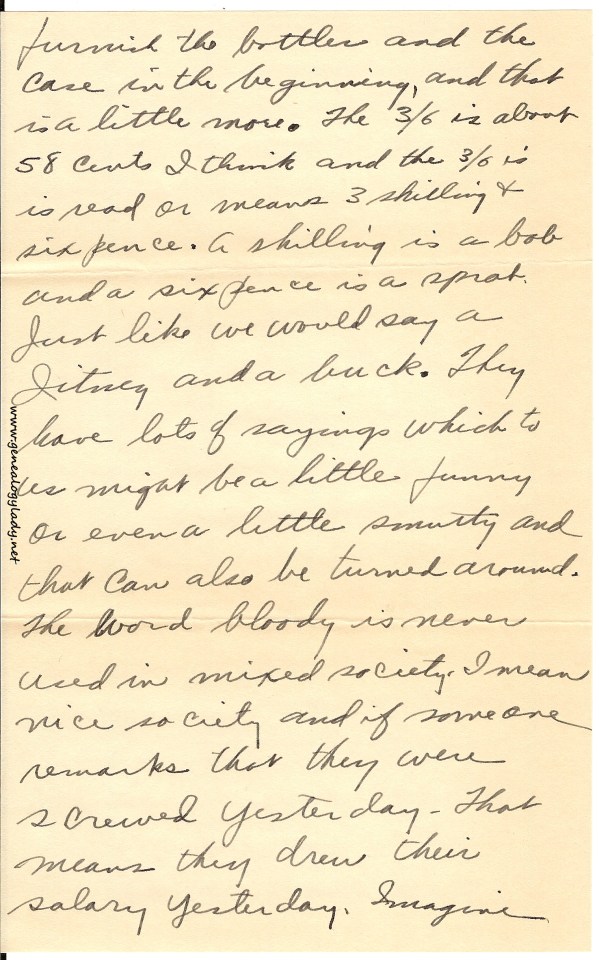 furnish the bottles and the
case in the beginning, and that
is a little more. The 3/6 is about
58 cents I think and the 3/6 is
is read or means 3 shilling &
six pence. A shilling is a bob
and a six pence is a sprat.
Just like we would say a
Jitney and a buck. They
have lots of sayings which to
us might be a little funny
or even a little smutty and
that can also be turned around.
The word bloody is never
used in mixed society. I mean
nice society and if someone
remarks that they were
screwed yesterday - That
means they drew their
salary yesterday. Imagine
www.genealogylady.net